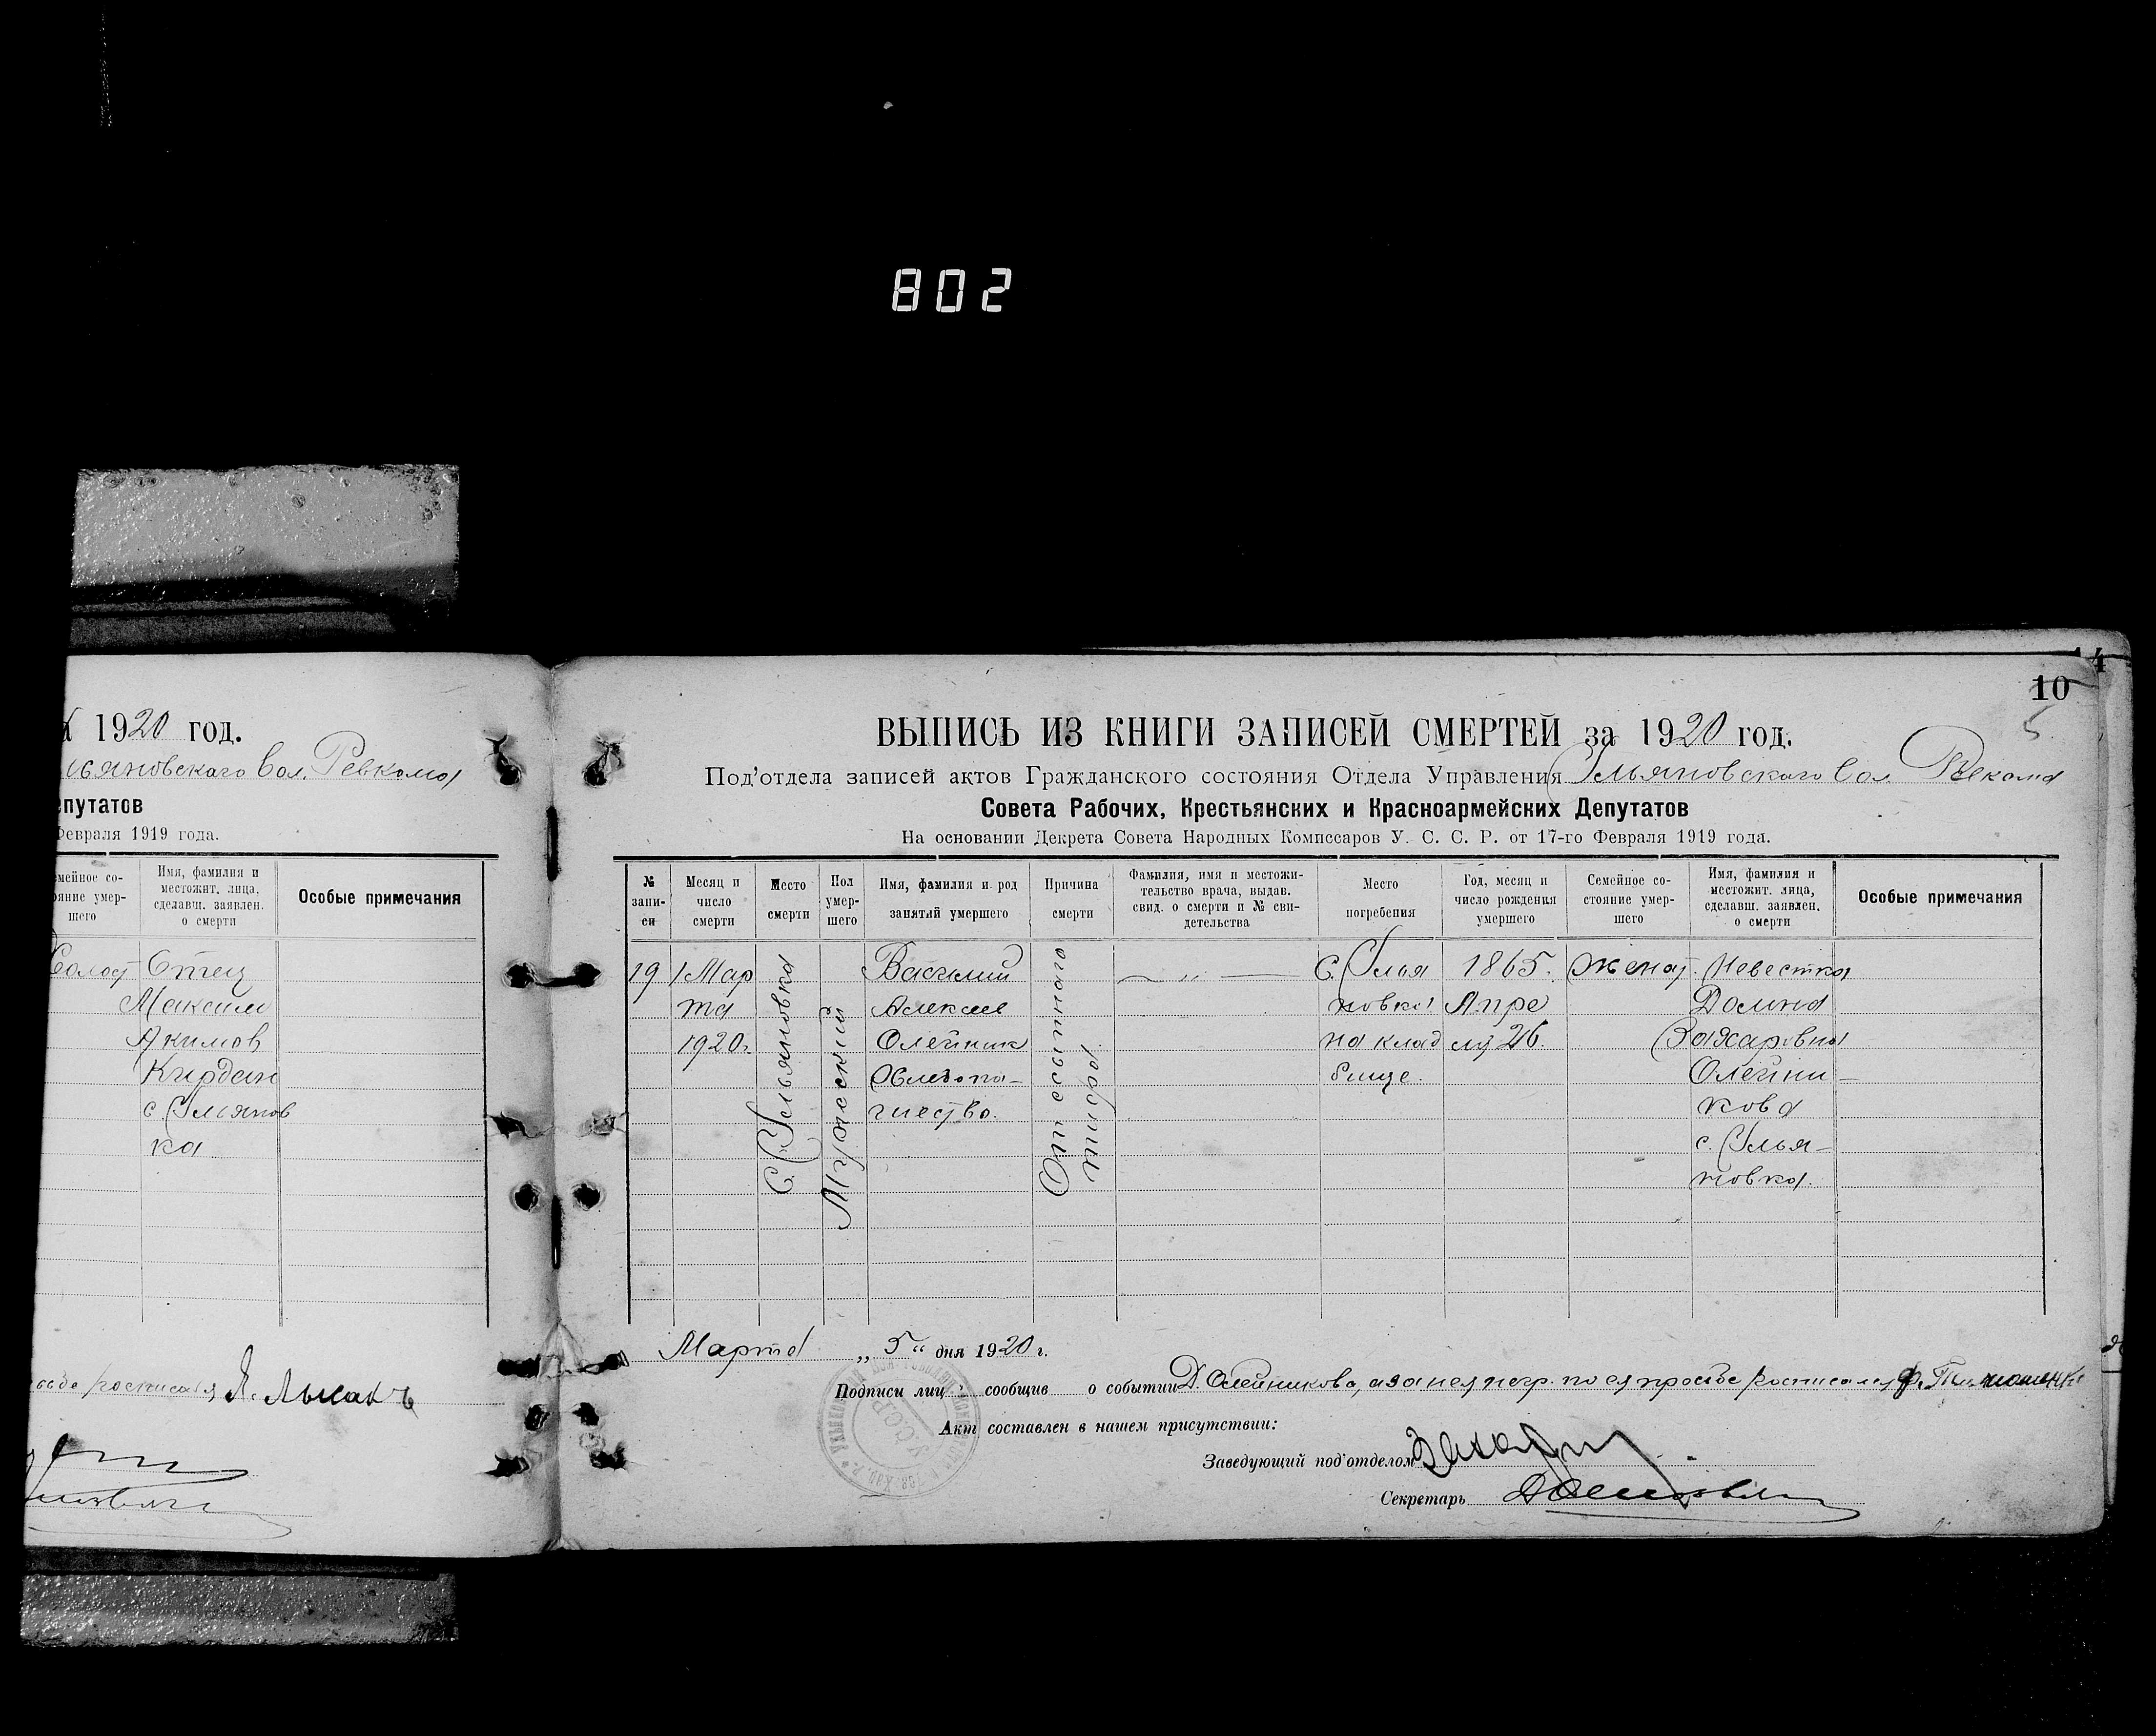 802
1920 год.
ьяновского Вол. Ревкома
епутатов
Февраля 1919 года.
мейное со-
ояние умер-
шего
Имя, фамилия и
местожит. лица,
сделавш. заявлен.
о смерти
Особые примечания
Холост Отец
Максим
Акимов
Кирдан
с. Ульянов
ка
росписался
14
10
5
ВЫПИСЬ ИЗ КНИГИ ЗАПИСЕЙ СМЕРТЕЙ за 1920 год.
Под'отдела записей актов Гражданского состояния Отдела Управления Ульяновского Вол. Ревкома
Совета Рабочих, Крестьянских и Красноармейских Депутатов
На основании Декрета Совета Народных Комиссаров У. С. С. Р. от 17-го Февраля 1919 года.
№
запи-
си
Месяц и
число
смерти
Место
смерти
Пол
умер-
шего
Имя, фамилия и род
занятий умершего
Причина
смерти
Фамилия, имя и местожи-
тельство врача, выдав.
свид. о смерти и № сви-
детельства
Место
погребения
Год, месяц и
число рождения
умершего
Семейное со-
стояние умер-
шего
Имя, фамилия и
местожит. лица,
сделавш. заявлен.
о смерти
Особые примечания
19
1 Мар
та
1920 г.
с. Ульяновка
Мужеский
Василий
Алексеев
Олейник
От сыпного
тифа
— „ —
с. Улья
новка
на клад
бище.
1865.
Апре
ля 26.
Женат.
Невестка
Домна
Захаровна
Олейни-
кова
с. Улья-
новка.
Марта „5“ дня 1920 г.
Подписи лиц сообщив о событии Д. Олейникова, а за нея негр. по ея просьбе росписался Ф. Тимошенко
Акт составлен в нашем присутствии:
Заведующий под'отделом
Секретарь